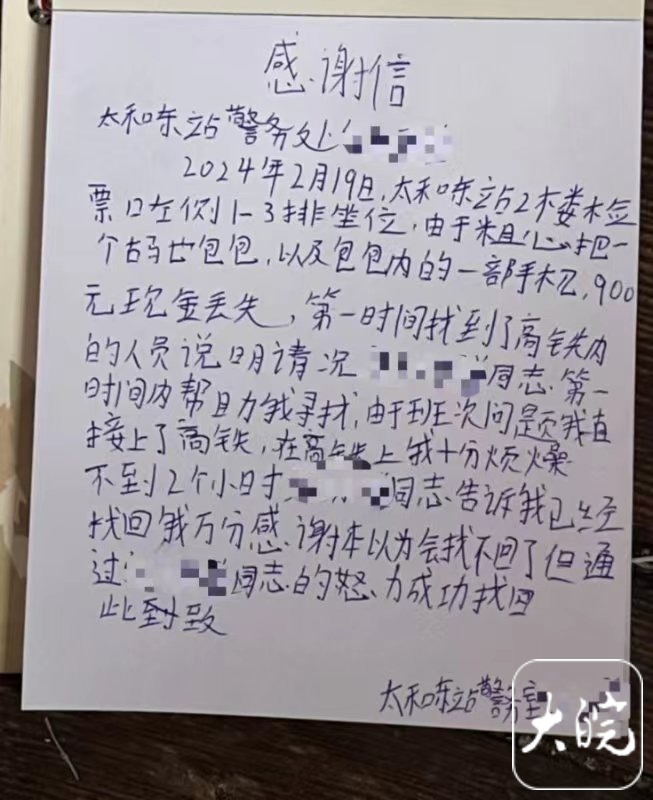 感谢信
太和东站警务处
2024年2月19日,太和东站2楼检
票口左侧1-3排坐位,由于粗心把一
个古驰包包,以及包包内的一部手机,900
元现金丢失,第一时间找到了高铁内
的人员说明请况 同志第一
时间内帮助我寻找,由于班次问题我直
接上了高铁,在高铁上我十分烦燥
不到2个小时 同志告诉我已经
找回我万分感谢本以为会找不回了但通
过 同志的怒力成功找回
此对致
太和东站警务室
大皖